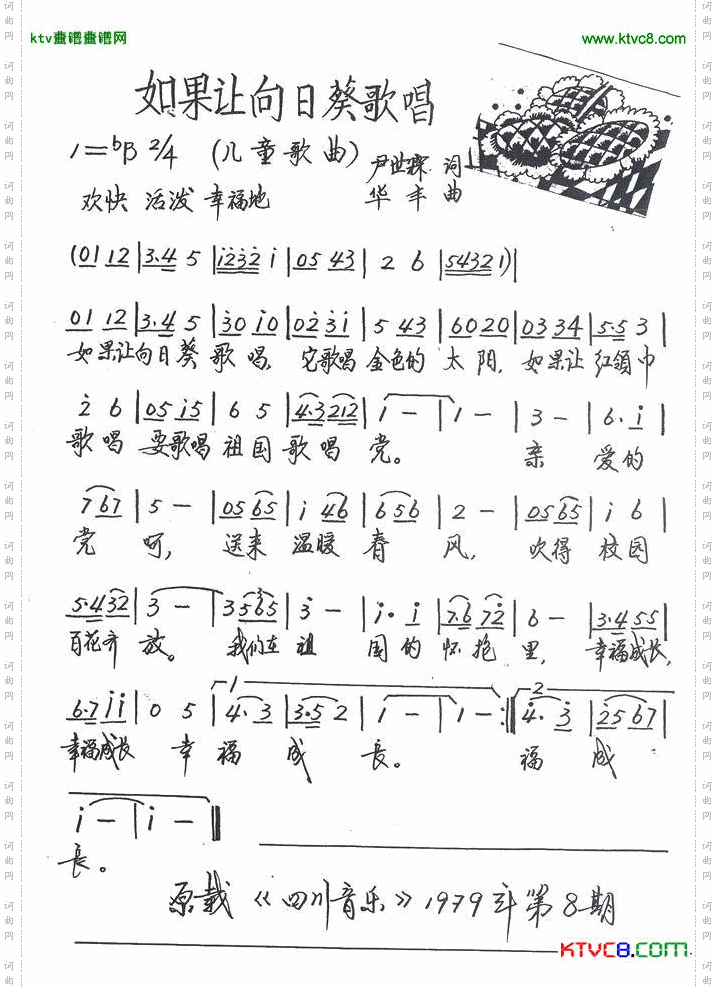 ktv歌谱歌谱网 www.ktvc8.com
如果让向日葵歌唱
1=bB 2/4 (儿童歌曲)
尹世霖 词
欢快 活泼 幸福地 华丰 曲
(01 12 | 3.4 5 | i232 i | 05 43 | 2 6 | 5432 1)|
01 12 | 3.4 5 | 30 i0 | 02 3i | 5 43 | 6020 | 03 34 | 5.5 3 |
如果让向日葵 歌 唱, 它歌唱 金色的 太 阳, 如果让 红领巾
2 6 | 05 i5 | 6 5 | 4.3 212 | i - | i - | 3 - | 6. i |
歌唱 要歌唱 祖国 歌 唱 党。 亲 爱的
7 67 | 5 - | 05 65 | i 46 | 6 56 | 2 - | 05 65 | i 6 |
党 呵, 送来 温暖 春 风, 吹得 校园
5.4 32 | 3 - | 35 65 | 3 - | i. i | 7.6 72 | 6 - | 3.4 55 |
百花齐 放。 我们在 祖 国 的 怀抱 里, 幸福成长,
6.7 ii | 0 5 | 1 4. 3 | 3.5 2 | i - | i - :| 2 4. 3 | 25 67 |
幸福成长 幸 福 成 长。 福 成
i - | i - ‖
长。
原载《四川音乐》1979年第8期
KTVC8.com